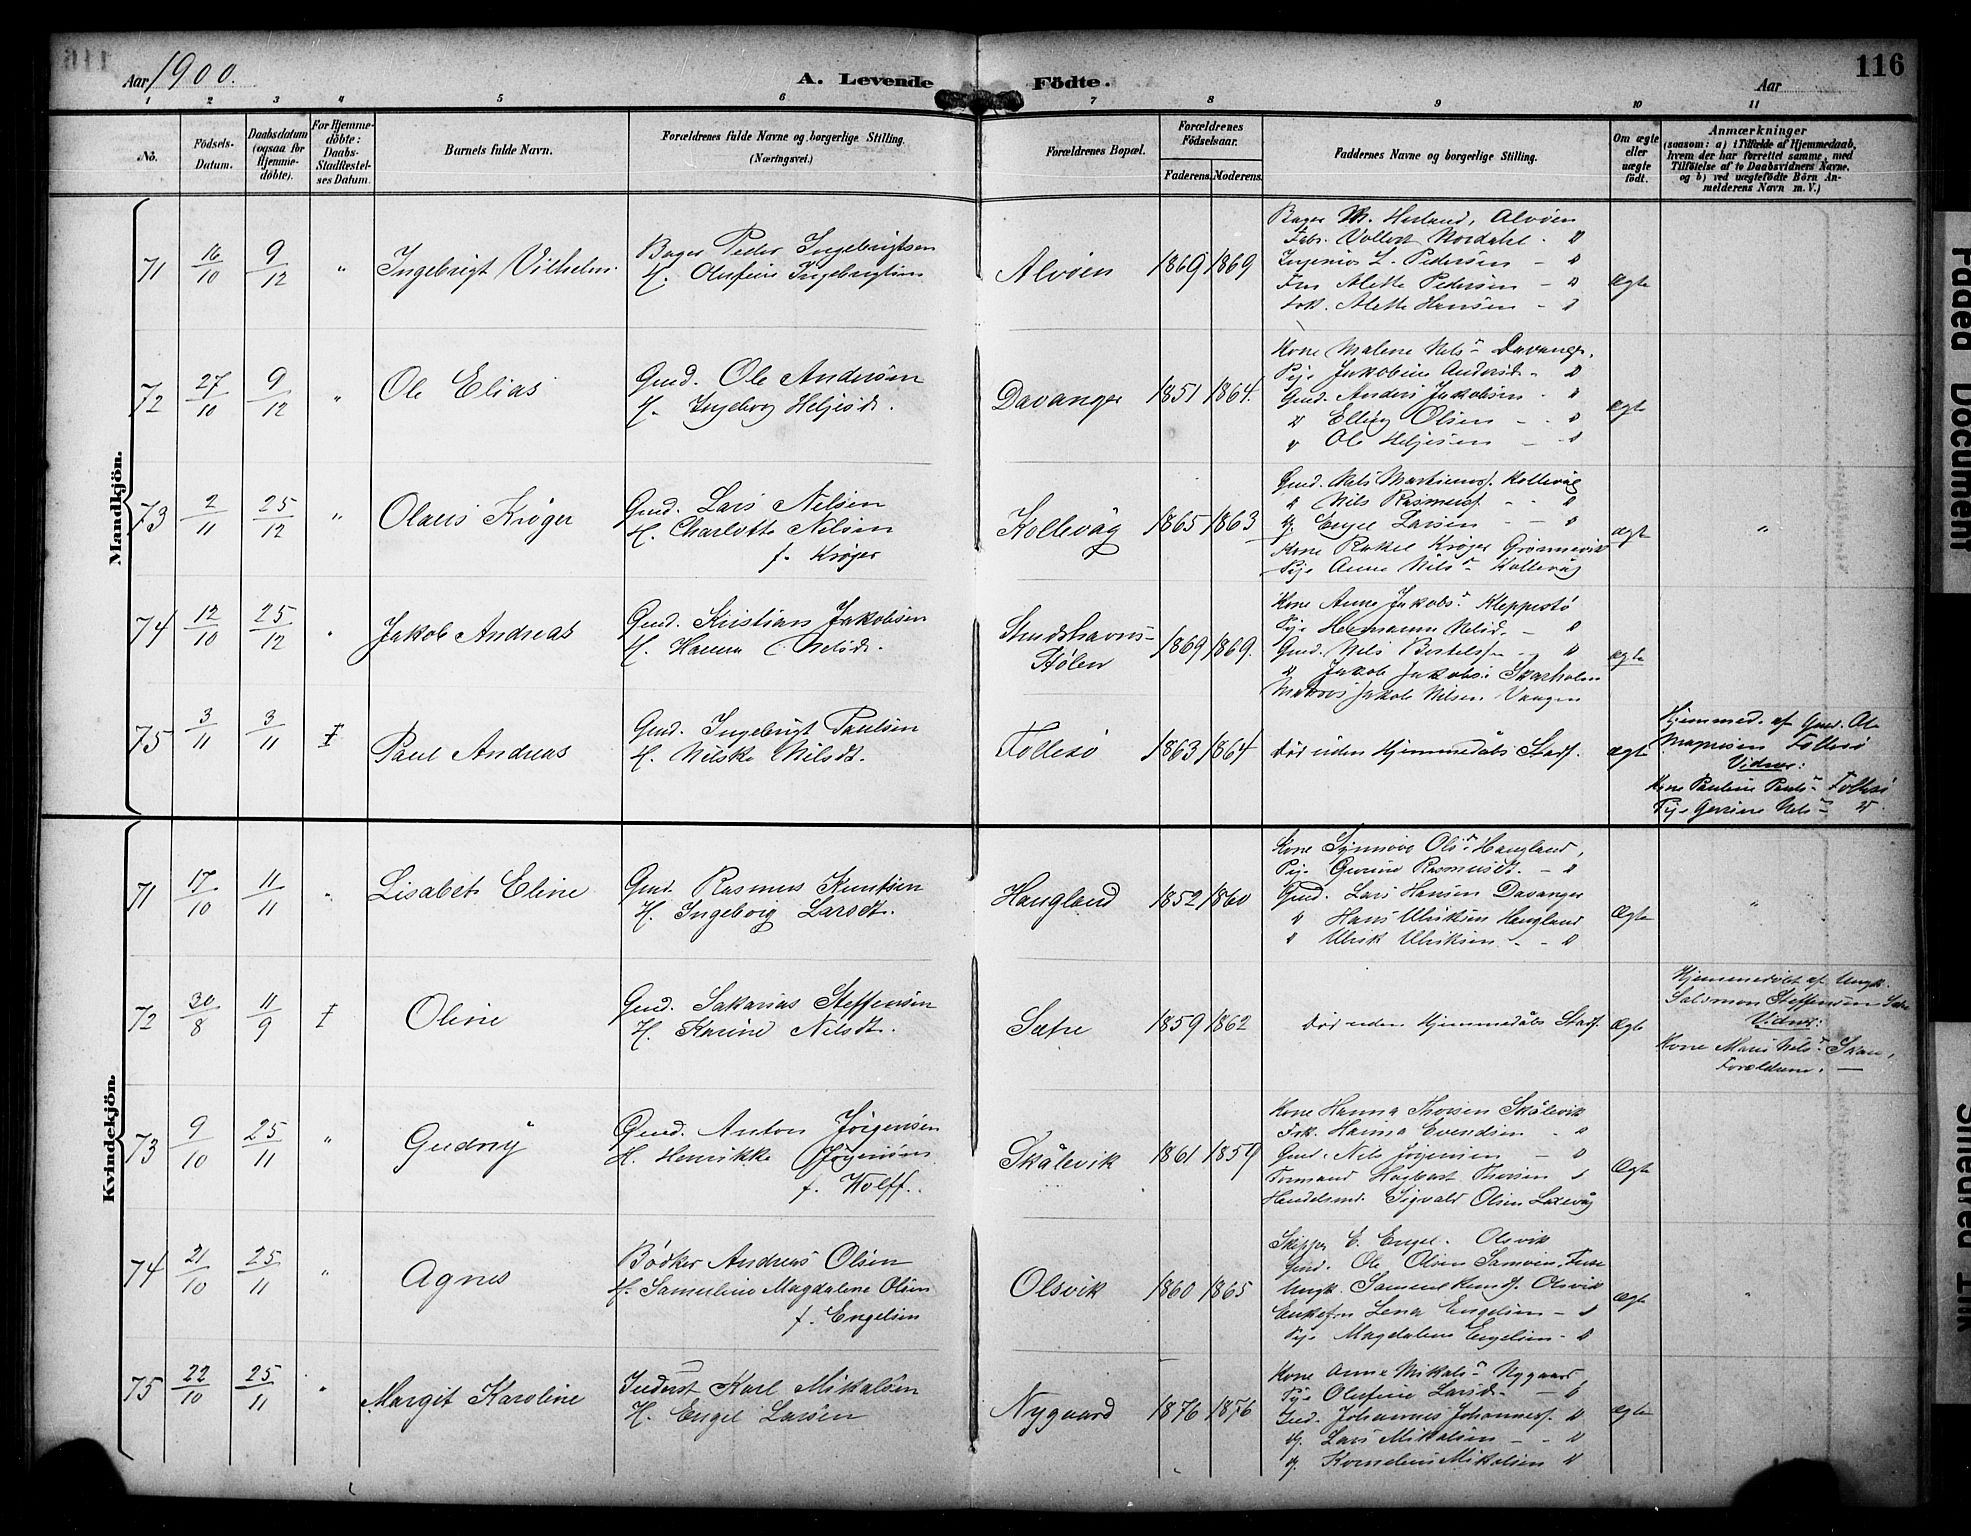 Aar 1900.
A. Levende Födte.
Aar
116
1 2 3 4 5 6 7 8 9 10 11
No.
Födsels-Datum.
Daabsdatum (ogsaa for Hjemme-döbte).
For Hjemme-döbte: Daabs-Stadfestel-ses Datum.
Barnets fulde Navn.
Forældrenes fulde Navne og borgerlige Stilling.
(Næringsvei.)
Forældrenes Bopæl.
Forældrenes Födselsaar.
Faderens. Moderens.
Faddernes Navne og borgerlige Stilling.
Om ægte eller uægte födt.
Anmærkninger
(saasom: a) i Tilfælde af Hjemmedaab,
hvem der har forrettet samme, med
Tilföielse af to Daabsvidners Navne,
og b) ved uægtefödte Börn An-
melderens Navn m. V.)
Mandkjön.
71 16/10 9/12 " Ingebrigt Vilhelm.
Bager Peder Ingebrigtsen
H. Olufine Ingebrigtsen
Alvøen 1869 1869
Bager M. Herland, Alvøen
Fabr. Vollert Nordahl. "
Ingeniør L. Pedersen - "
Fru Alette Pedersen - "
Frk. Alette Hansen - "
Ægte
72 27/10 9/12 " Ole Elias
Gmd. Ole Andersen
H. Ingeborg Heljesd.
Davanger 1851 1864.
Kone Malene Nels.d. Davanger.
Pige Jakobine Andersd. - "
Gmd. Anders Jakobsen - "
" Elling Olsen - "
" Ole Heljesen - "
Ægte
73 2/11 25/12 " Olaus Krøger
Gmd. Lars Nilsen
H. Charlotte Nilsen
f. Krøger
Kollevåg 1865 1863
Gmd. Nels Martinus. Kollevåg
" Nils Rasmus. - "
Engel Larsen - "
Kone Rakel Krøger Grønnevik
Pige Anna Nils.d. Kollevåg
ægte "
74 12/10 25/12 " Jakob Andreas
Gmd. Kristian Jakobsen
H. Hanna Nelsd.
Strudshavns-
Stølen 1869 1869.
Kone Anne Jakobs.d. Kleppestø
Pige Hermann Nelsd. - "
Gmd. Nils Bertels. - "
" Jakob Jakobs. Skarholm
Matros Jakob Nilsen. Vaagen
ægte
75 3/11 3/11 Paul Andreas
Gmd. Ingebrigt Paulsen
H. Nilske Nilsdt.
Follesø 1863 1864
Død uden Hjemmedåbs Stadf. ægte
Hjemmed. af Gmd. Ole
Magnesen Follesø
Vidner:
Kone Pauline Pauls.d. Follesø
Pige Gurine Nels.d. "
Kvindekjön.
71 17/10 11/11 " Lisabet Eline
Gmd. Rasmus Knutsen
H. Ingeborg Larsdt.
Haugland 1852 1860
Kone Synnøve Ols.d. Haugland,
Pige Gurine Rasmusdt. - "
Gmd. Lars Hansen Davanger
" Hans Ulriksen Haugland
" Ulrik Ulriksen - "
Ægte "
72 30/8 11/9 Oline
Gmd. Sakarias Steffensen
H. Karine Nilsdt.
Sætre 1859 1862
Død uden Hjemmedåbs Stadf. Ægte
Hjemmedøbt af Ungk.
Salomon Steffensen Sætre
Vidner:
Kone Maris Nels.d. Skaar,
Forældrene. -
73 9/10 25/11 " Gudny
Gmd. Anton Jørgensen
H. Henrikke Jørgensen
f. Wolff.
Skålevik 1861 1859
Kone Hanna Thorsen Skålevik
Frk. Hanna Evendsen - "
Gmd. Nils Jørgensen - "
Formand Hagbart Thorsen "
Handelsmd. Sigvald Olsen Laxevåg
Ægte
74 21/10 25/11 " Agnes
Bødker Andreas Olsen
H. Samueline Magdalene Olsen
f. Engelsen
Olsvik 1860 1865
Skipper E. Engel. Olsvik
Gmd. Ole Olsen
Ungk. Samuel Knuds. Olsvik
Enkefru Lena Engelsen - "
Pige Magdalene Engelsen - "
Ægte "
75 22/10 25/11 " Margit Karoline
Inderst Karl Mikalsen
H. Engel Larsen
Nygaard 1876 1876
Kone Anna Mikals.d. Nygaard
Pige Olufine Larsd. - "
Gmd. Johannes Johannes. "
Lars Mikalsen - "
Kornelius Mikalsen "
Ægte
Faded Document
Smeared Ink